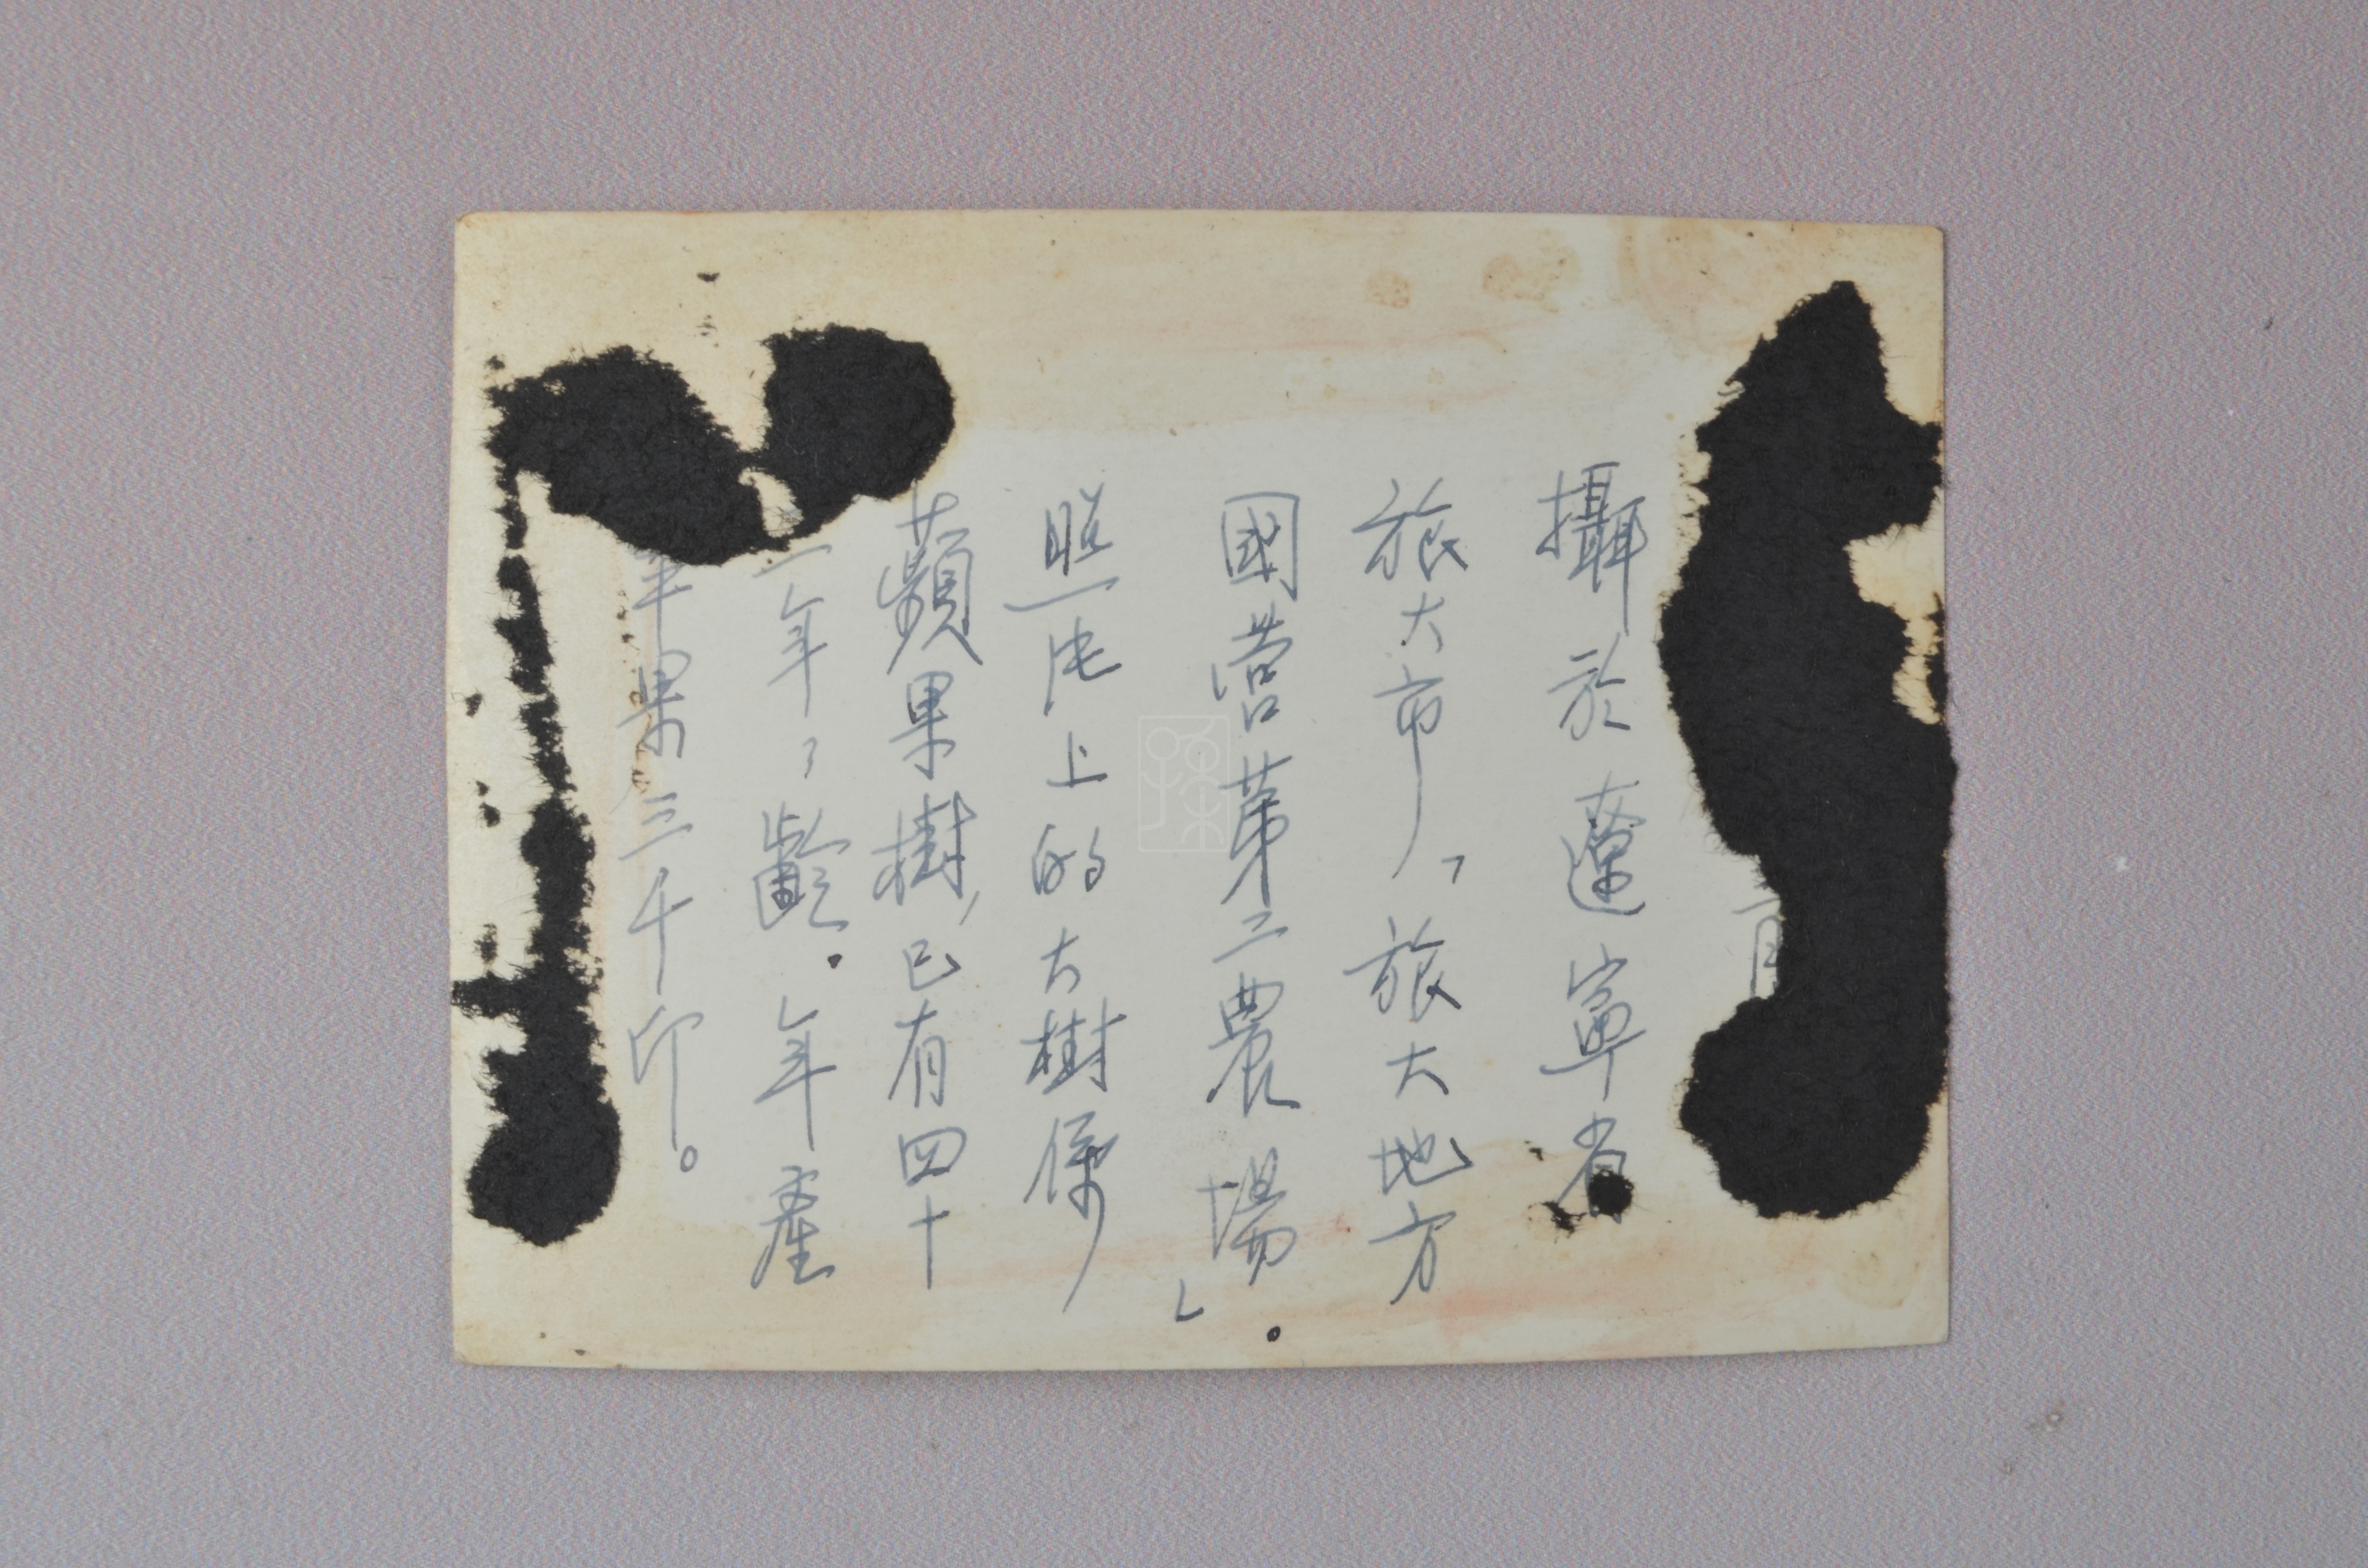 攝於遼寧省
旅大市,「旅大地方
國营苐二農場」。
照片上的大樹係
蘋果樹,已有四十
一年々齡。年產
苹果三千印。